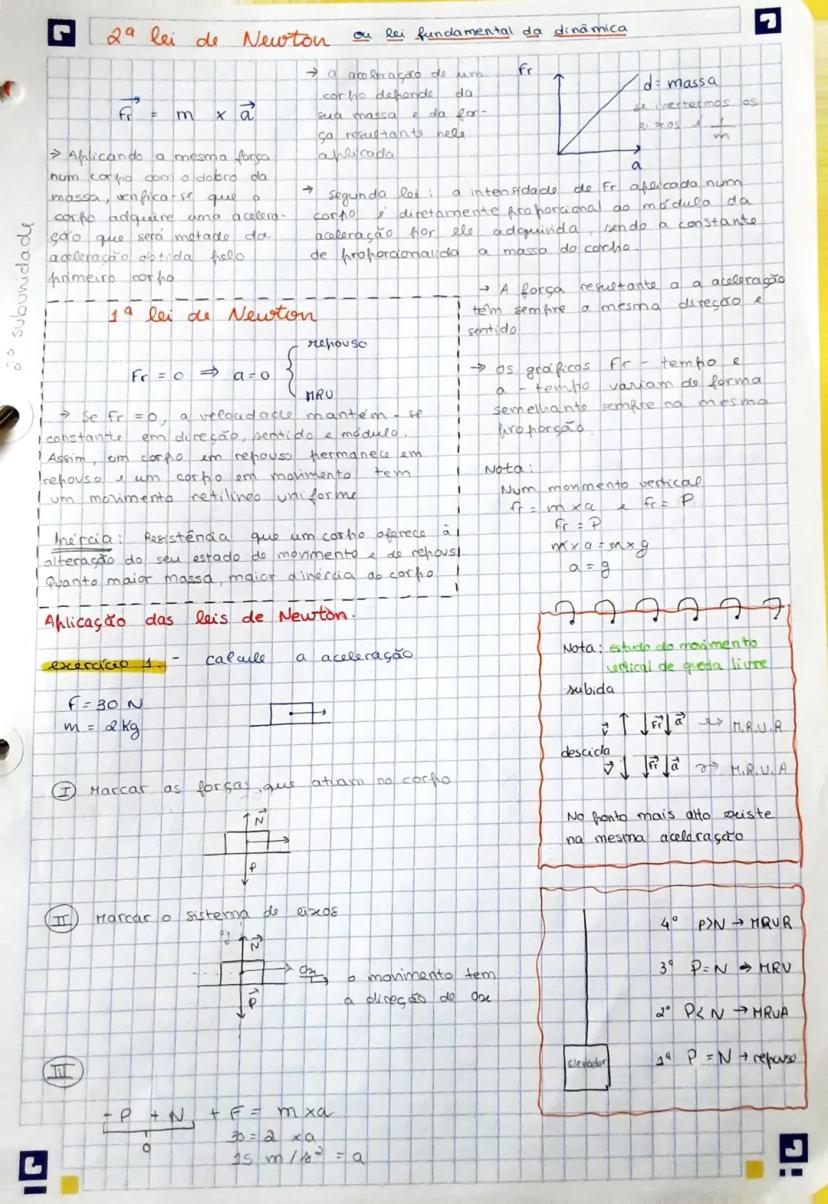 2ª lei de Newton ou lei fundamental da dinâmica
Fr = m x a
→ a aceleração de um
corpo depende da
sua massa e da for-
ça resultante nele
aplicada
Fr
d= massa
se invertermos os
eixos é 1/m
a
→ Aplicando a mesma força
num corpo com o dobro da
massa, verifica-se que o
corpo adquire uma acelera-
ção que será metade da
aceleração obtida pelo
primeiro corpo
→ Segunda lei: a intensidade de Fr aplicada num
corpo é diretamente proporcional ao módulo da
aceleração por ele adquirida, sendo a constante
de proporcionalida a massa do corpo.
→ A força resultante a a aceleração
têm sempre a mesma direção e
sentido
→ os gráficos Fr - tempo e
a - tempo variam de forma
semelhante sempre na mesma
proporção
Nota:
Num movimento vertical
fr = m x a e fr = P
fr = P
m x a = m x g
a = g
subunidade
1ª lei de Newton
Fr = 0 ⇒ a = 0 {
repouso
MRU
→ Se Fr = 0, a velocidade mantém-se
constante em direção, sentido e módulo.
Assim, um corpo em repouso permanece em
repouso e um corpo em movimento tem
um movimento retilíneo uniforme
Inércia: Resistência que um corpo oferece à
alteração do seu estado de movimento e de repous
Quanto maior massa, maior a inércia do corpo
Aplicação das leis de Newton.
exercício 1. - calcule a aceleração
F = 30 N
m = 2 kg
I Marcar as forças que atuam no corpo
N
P
II Marcar o sistema de eixos
N
P
Ox
o movimento tem
a direção de Ox
III
- P + N + F = m x a
0
30 = 2 x a
15 m/s² = a
Nota: estudo do movimento
vertical de queda livre
subida
v ↑ ↓ Fr ↓ a → M.R.U.R
descida
v ↓ ↓ Fr ↓ a → M.R.U.A
No ponto mais alto existe
na mesma aceleração
elevador
4º P>N → MRUR
3º P=N → MRU
2º P<N → MRUA
1º P = N → repouso